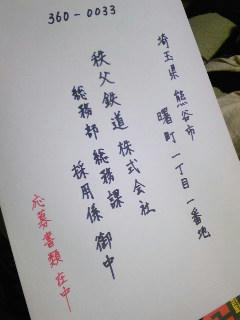 360-0033
埼玉県 熊谷市
曙町一丁目一番地
秩父鉄道株式会社
総務部 総務課
採用係 御中
応募書類在中